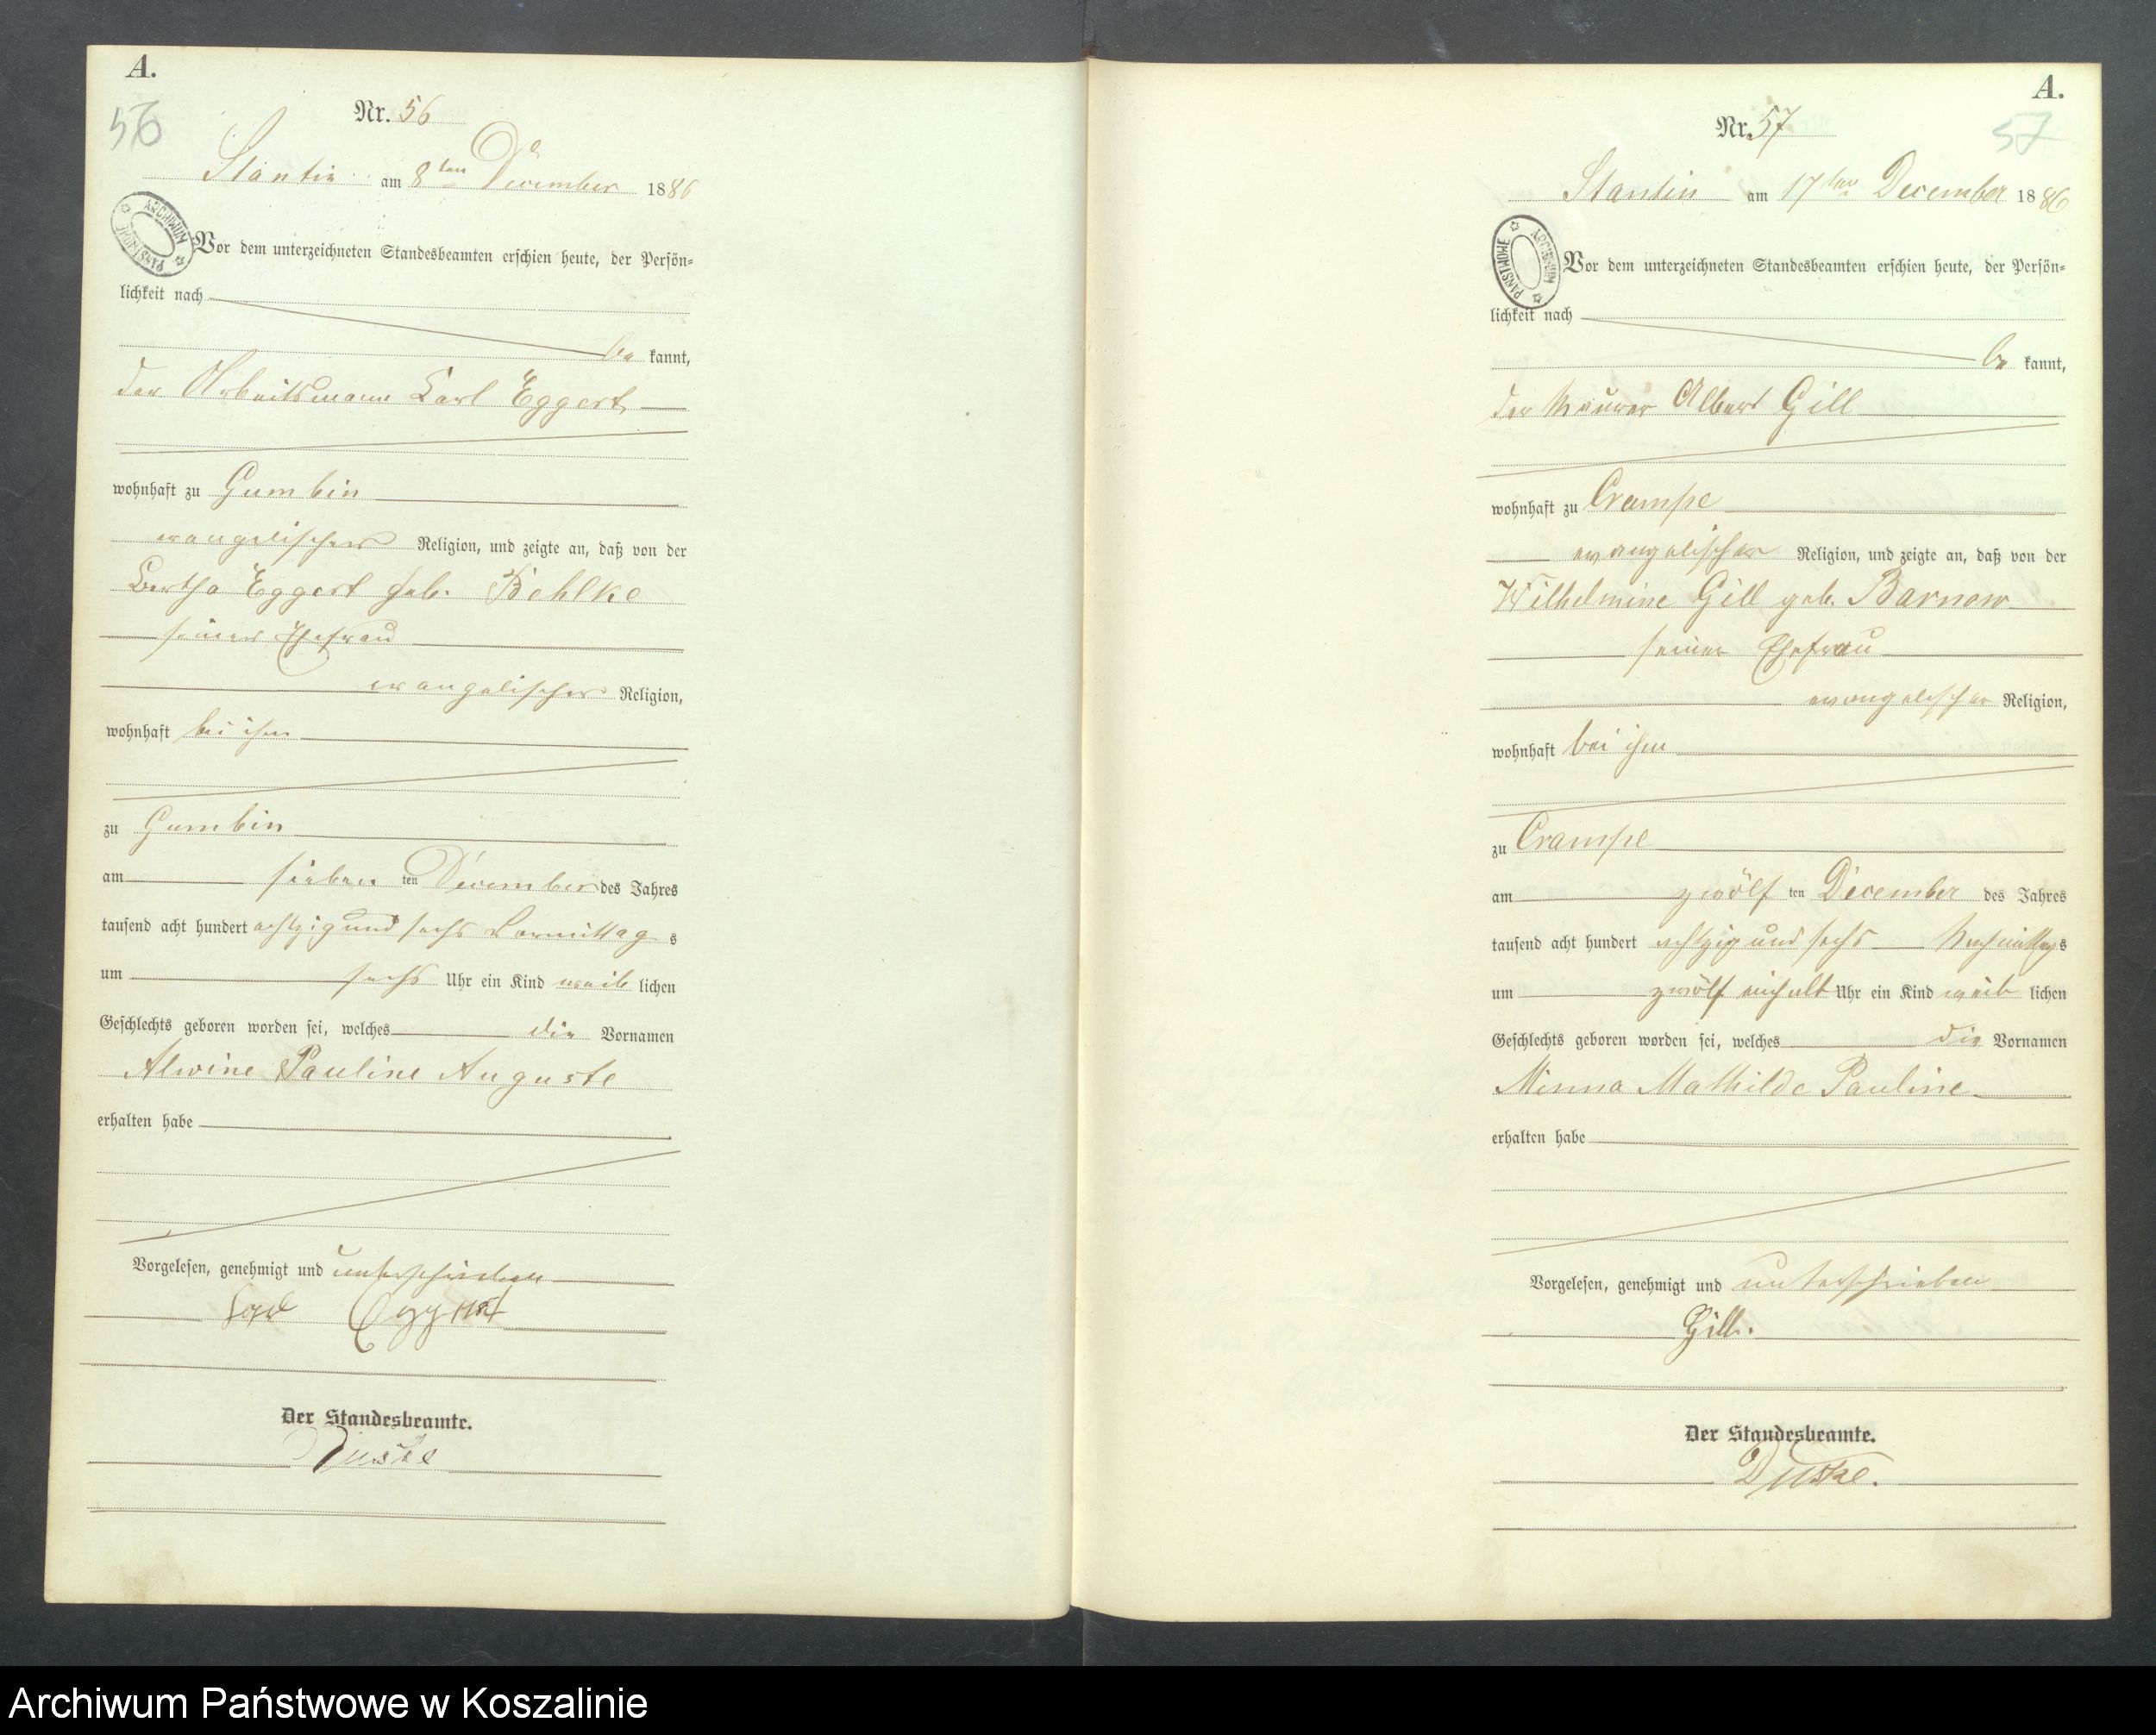 A.
56
Nr. 56
Stantin am 8ten December 1886
ARCHIWUM PAŃSTWOWE
Vor dem unterzeichneten Standesbeamten erschien heute, der Persön-
lichkeit nach
be kannt,
der Arbeitsmann Carl Eggert
wohnhaft zu Gumbin
evangelischer Religion, und zeigte an, daß von der
Bertha Eggert geb. Behlke
seiner Ehefrau
evangelischer Religion,
wohnhaft bei ihm
zu Gumbin
am sieben ten December des Jahres
tausend acht hundert achtzig und sechs Vormittag s
um sechs Uhr ein Kind weib lichen
Geschlechts geboren worden sei, welches die Vornamen
Alwine Pauline Auguste
erhalten habe
Vorgelesen, genehmigt und unterschrieben
Carl Eggert
Der Standesbeamte.
A.
57
Nr. 57
Stantin am 17ten December 1886
ARCHIWUM PAŃSTWOWE
Vor dem unterzeichneten Standesbeamten erschien heute, der Persön-
lichkeit nach
be kannt,
der Maurer Albert Gill
wohnhaft zu Crampe
evangelischer Religion, und zeigte an, daß von der
Wilhelmine Gill geb. Barnow
seiner Ehefrau
evangelischer Religion,
wohnhaft bei ihm
zu Crampe
am zwölf ten December des Jahres
tausend acht hundert achtzig und sechs Nachmittag s
um zwölf einhalb Uhr ein Kind weib lichen
Geschlechts geboren worden sei, welches die Vornamen
Minna Mathilde Pauline
erhalten habe
Vorgelesen, genehmigt und unterschrieben
Gill.
Der Standesbeamte.
Archiwum Państwowe w Koszalinie